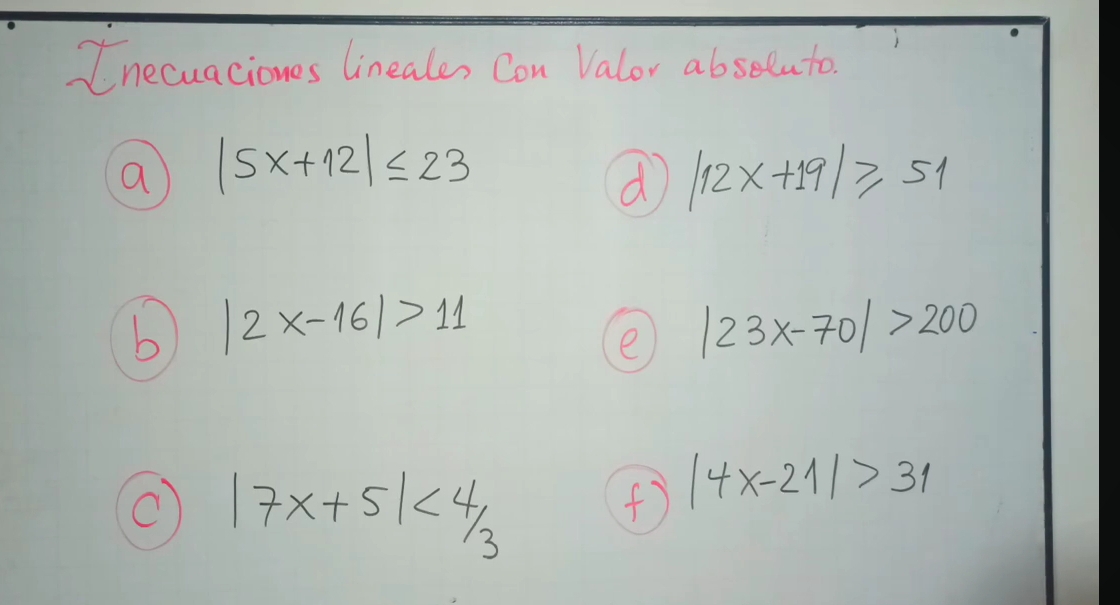 Inecuaciones lineales Con Valor absoluto.
a |5x+12| ≤ 23
d |12x+19| ⩾ 51
b |2x-16| > 11
e |23x-70| > 200
c |7x+5| < 4/3
f |4x-21| > 31